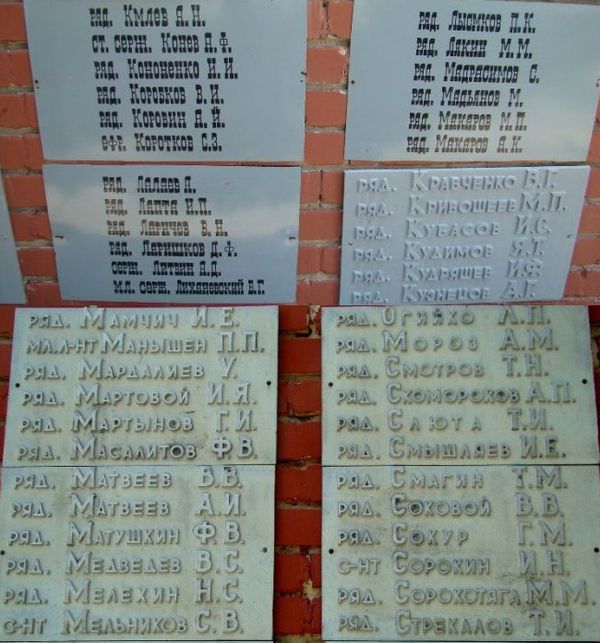 ряд. Кмлев А.Н.
ст. серж. Конев А.Ф.
ряд. Кононенко И.И.
ряд. Коробков В.И.
ряд. Коровин А.Й.
ефр. Коротков С.З.
ряд. Лысиков П.К.
ряд. Лякин М.М.
ряд. Мадрасимов С.
ряд. Мадьянов М.
ряд. Макаров М.П.
ряд. Макаров А.К.
ряд. Лалаев А.
ряд. Лапта И.П.
ряд. Ларичев В.Н.
ряд. Ларишков Д.Ф.
серж. Литвин А.Д.
мл. серж. Лихановский В.Г.
ряд. Кравченко В.Г.
ряд. Кривошеев М.П.
ряд. Кубасов И.С.
ряд. Кудимов Я.Т.
ряд. Кудряшев И.Ф.
ряд. Кузнецов А.Г.
ряд. Мамчич И.Е.
мл.л-нт Манышен П.П.
ряд. Мардалиев У.
ряд. Мартовой И.Я.
ряд. Мартынов Г.И.
ряд. Масалитов Ф.В.
ряд. Огийко Л.П.
ряд. Мороз А.М.
ряд. Смотров Т.Н.
ряд. Скоморохов А.П.
ряд. Слюта Т.И.
ряд. Смышляев И.Е.
ряд. Матвеев
ряд. Матвеев А.И.
ряд. Матушкин Ф.В.
ряд. Медведев В.С.
ряд. Мелехин Н.С.
с-нт Мельников С.В.
ряд. Смагин Т.М.
ряд. Соковой В.В.
ряд. Сокур Г.М.
с-нт Сорокин И.Н.
ряд. Сорокотяга М.М.
ряд. Стрекалов Т.И.